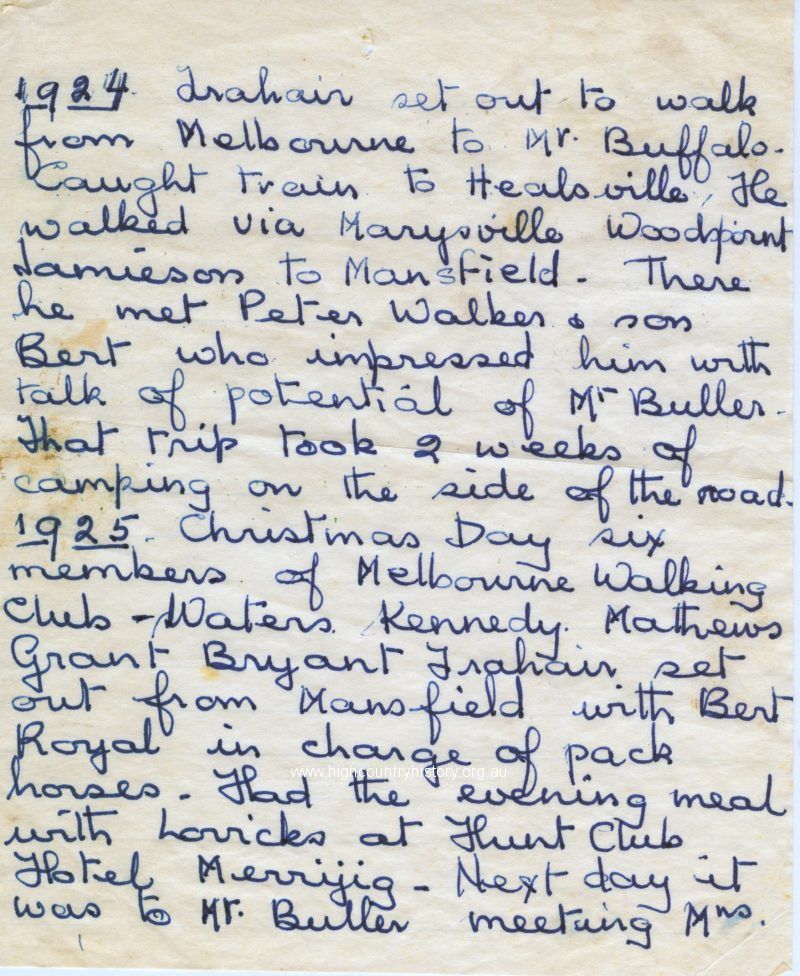 1924. Trahair set out to walk
from Melbourne to Mt. Buffalo.
Caught train to Healsville. He
walked via Marysville Woodpoint
Jamieson to Mansfield. There
he met Peter Walker & son
Bert who impressed him with
talk of potential of Mt Buller.
That trip took 2 weeks of
camping on the side of the road.
1925. Christmas Day six
members of Melbourne Walking
Club - Waters. Kennedy. Mathews
Grant Bryant Trahair set
out from Mansfield with Bert
Royal in charge of pack
www.highcountryhistory.org.au
horses. Had the evening meal
with Lovicks at Hunt Club
Hotel Merrijig - Next day it
was to Mt. Buller meeting Mrs.